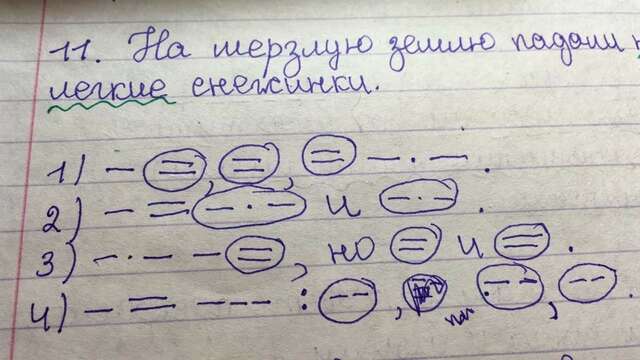 11. На мерзлую землю падали
легкие снежинки.
1) — =, =, = — · — .
2) — = — · — и — · — .
3) — · — — =, но = и = .
4) — = – – – : – –, – · –, – – .